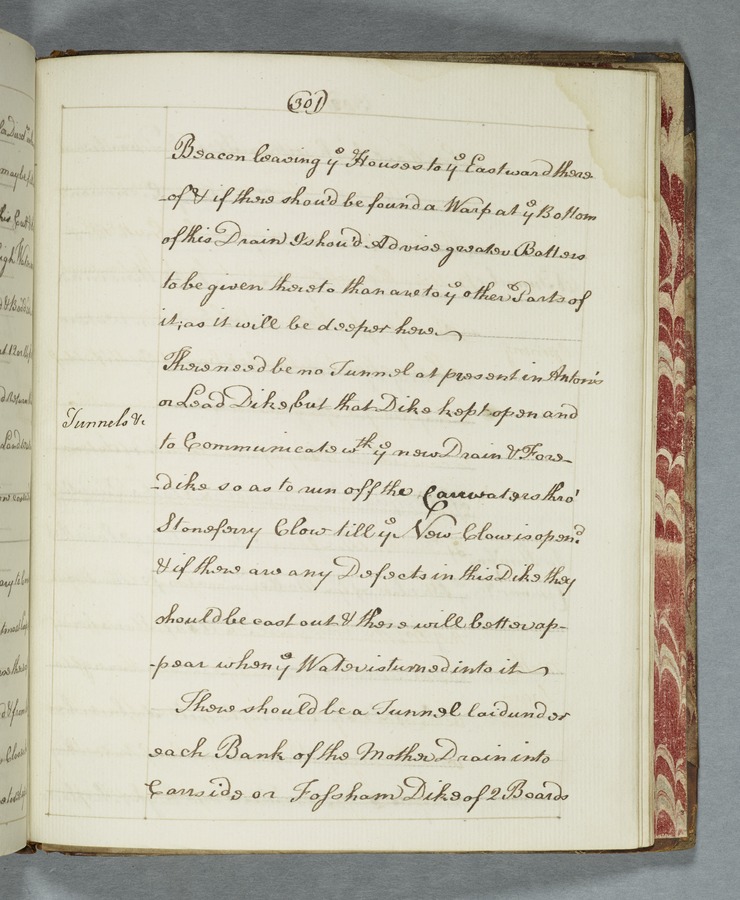 301
Beacon leaving ye Houses to ye Eastward there
-of & if there shou'd be found a Warp at ye Bottom
of this Drain I shou'd Advise greater Batters
to be given thereto than are to ye other Parts of
it; as it will be deeper here
There need be no Tunnel at present in Anton's
or Lead Dike, but that Dike kept open and
Tunnels &c
to Communicate wth ye new Drain & Fore-
-dike so as to run off the Carrwaters thro'
Stoneferry Clow till ye New Clow is open'd
& if there are any Defects in this Dike they
should be cast out & these will better ap-
-pear when ye Water is turned into it
There should be a Tunnel laid under
each Bank of the Mother Drain into
Carrside or Fossham Dike of 2 Boards